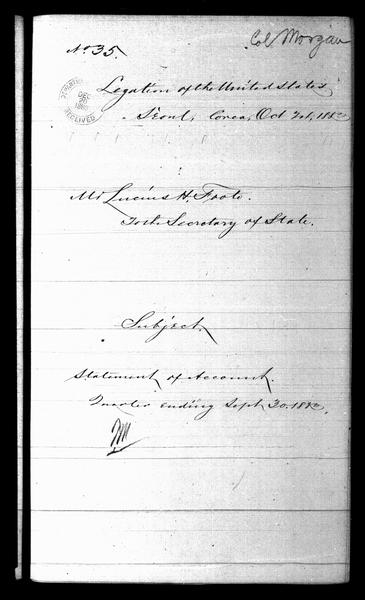 Col Morgan
No 35.
Legation of the United States,
Seoul, Corea, Oct 1st, 1883,
Mr Lucius H. Foote.
To the Secretary of State.
Subject,
Statement of Account.
Quarter ending Sept 30. 1883.